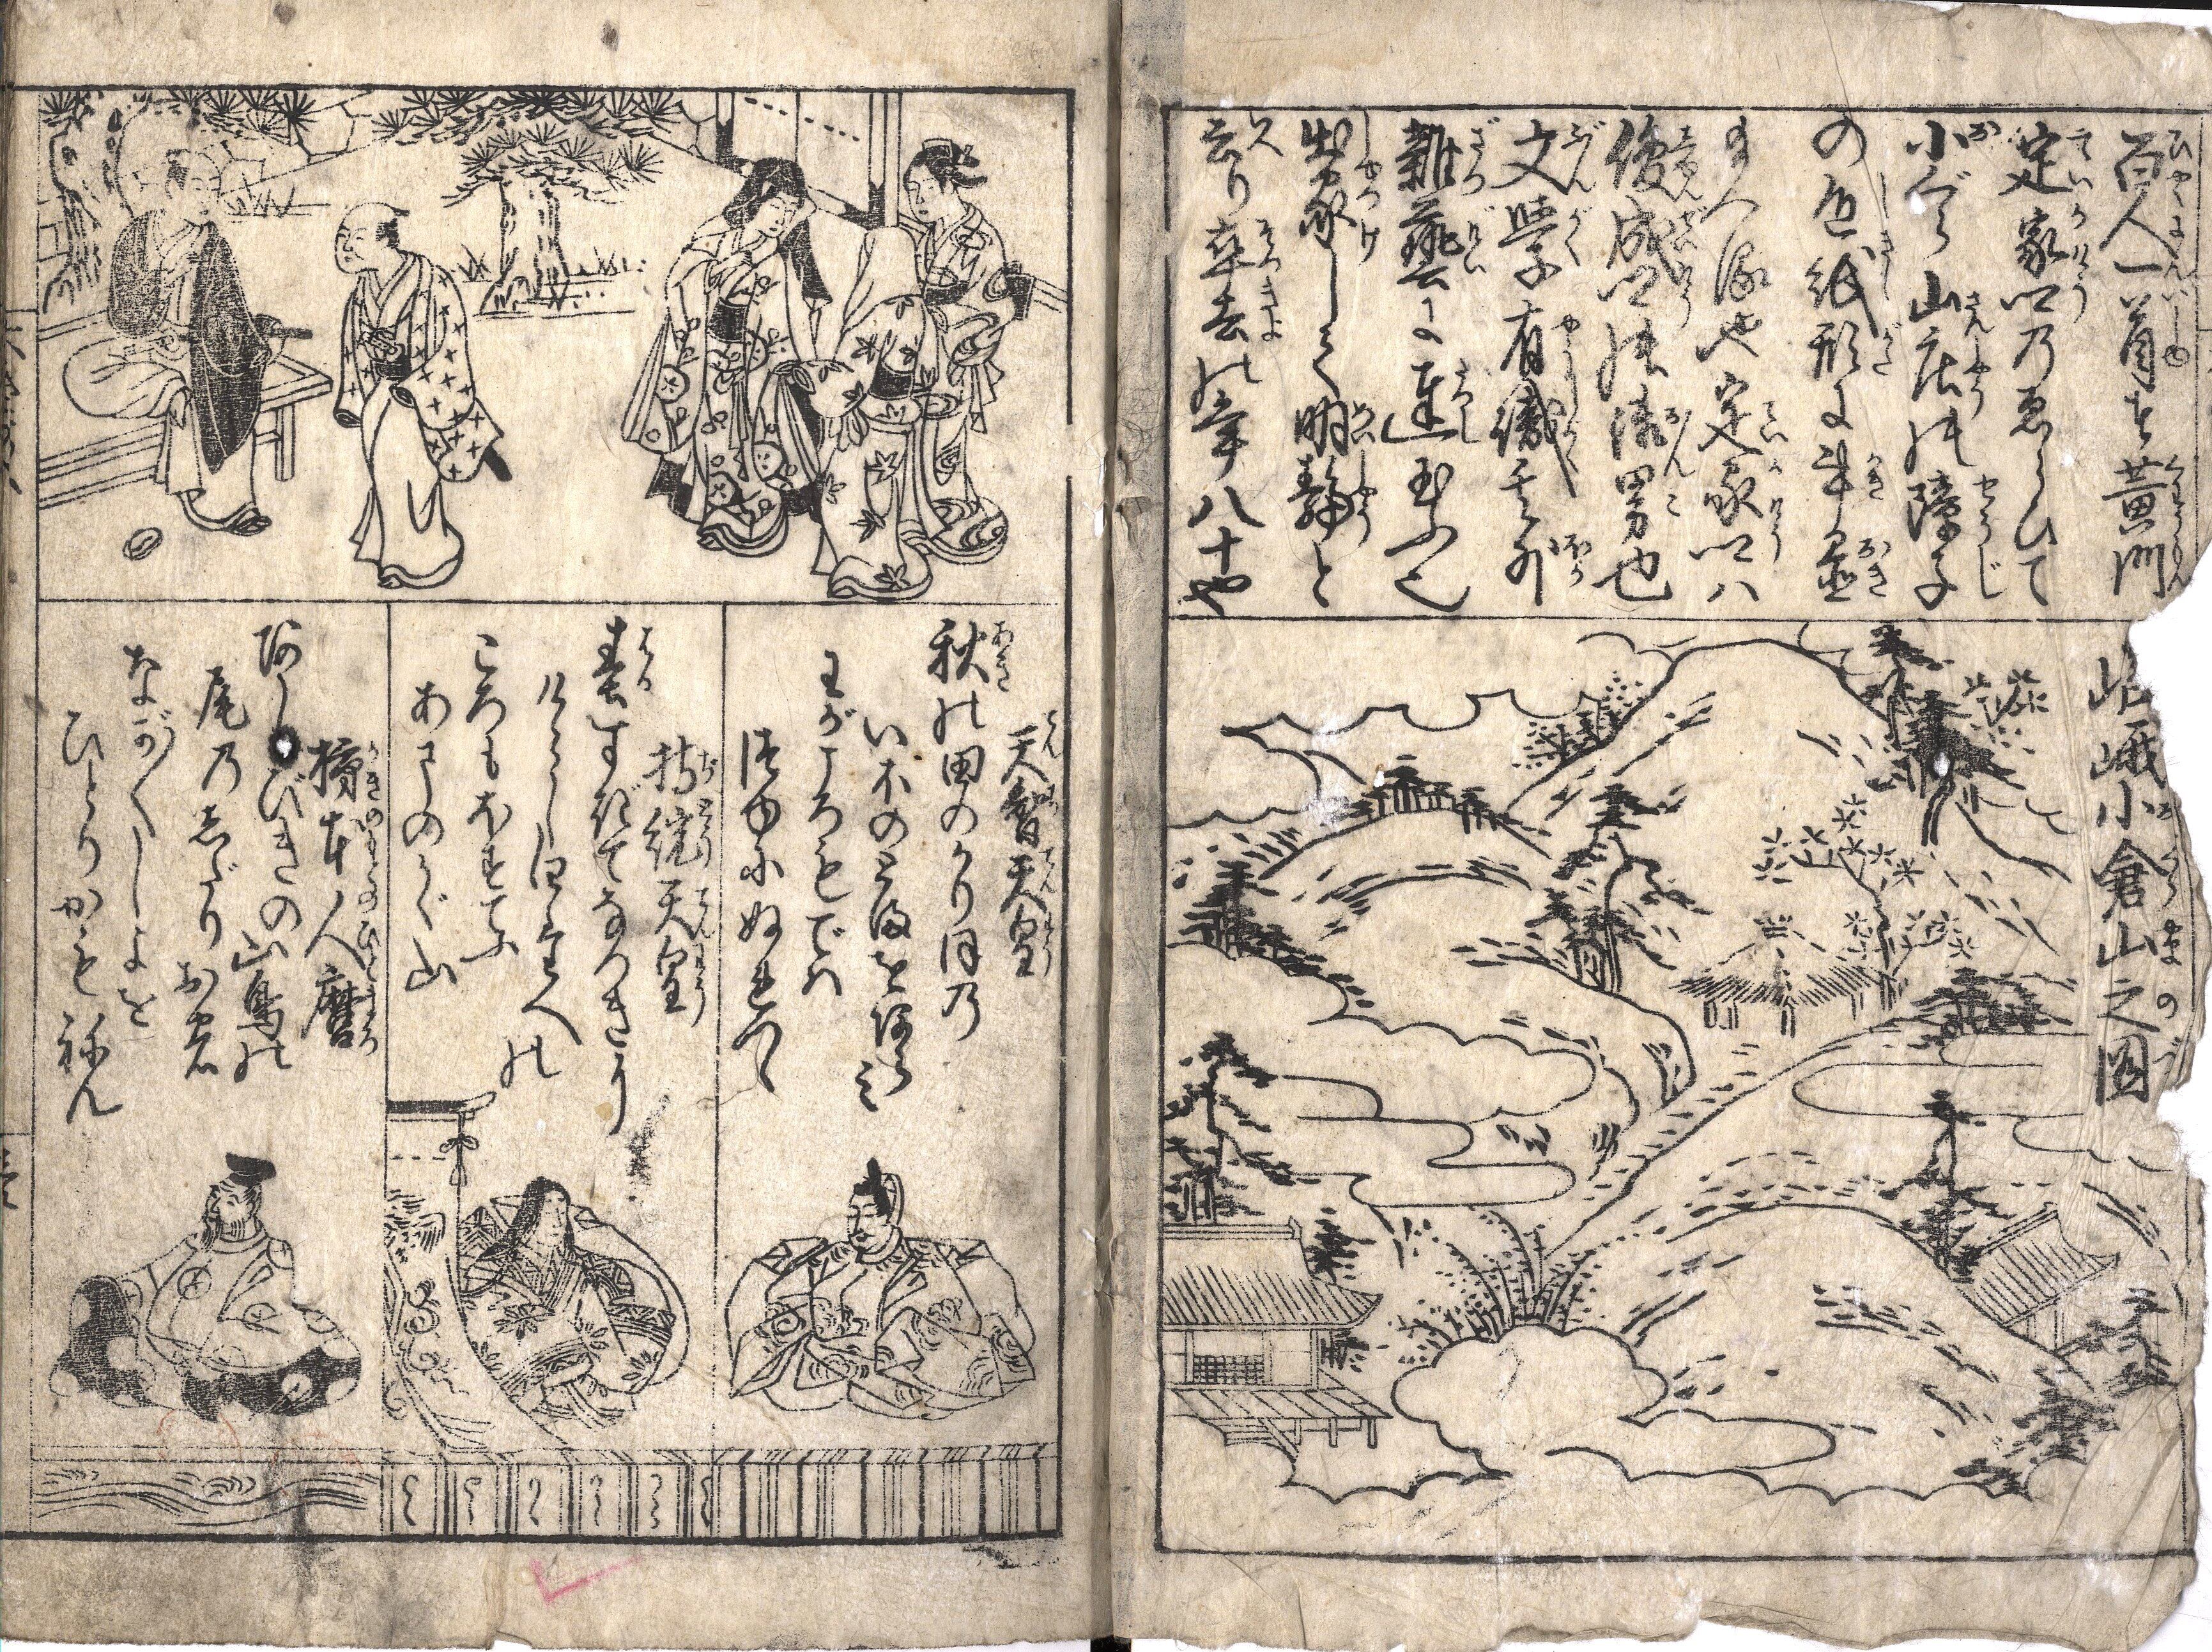 百人一首は黄門
定家卿乃ゑらひて
小ぐら山庄の障子
の色紙形に書置
給ふ歌也定家卿ハ
俊成卿の済男也
文学有織其外
雑藝に達し玉ふ也
出家して明静と
云り卒去の年八十や
嵯峨小倉山之図
天智天皇
秋の田のかりほ乃
いほのとまをあらみ
わがころもでハ
つゆにぬれつゝ
持統天皇
春すぎてなつきに
けらししろたへの
ころもほすてふ
あまのかぐ山
柿本人麿
あしびきの山鳥の
尾乃しだりおの
なが〳〵しよを
ひとりかもねん